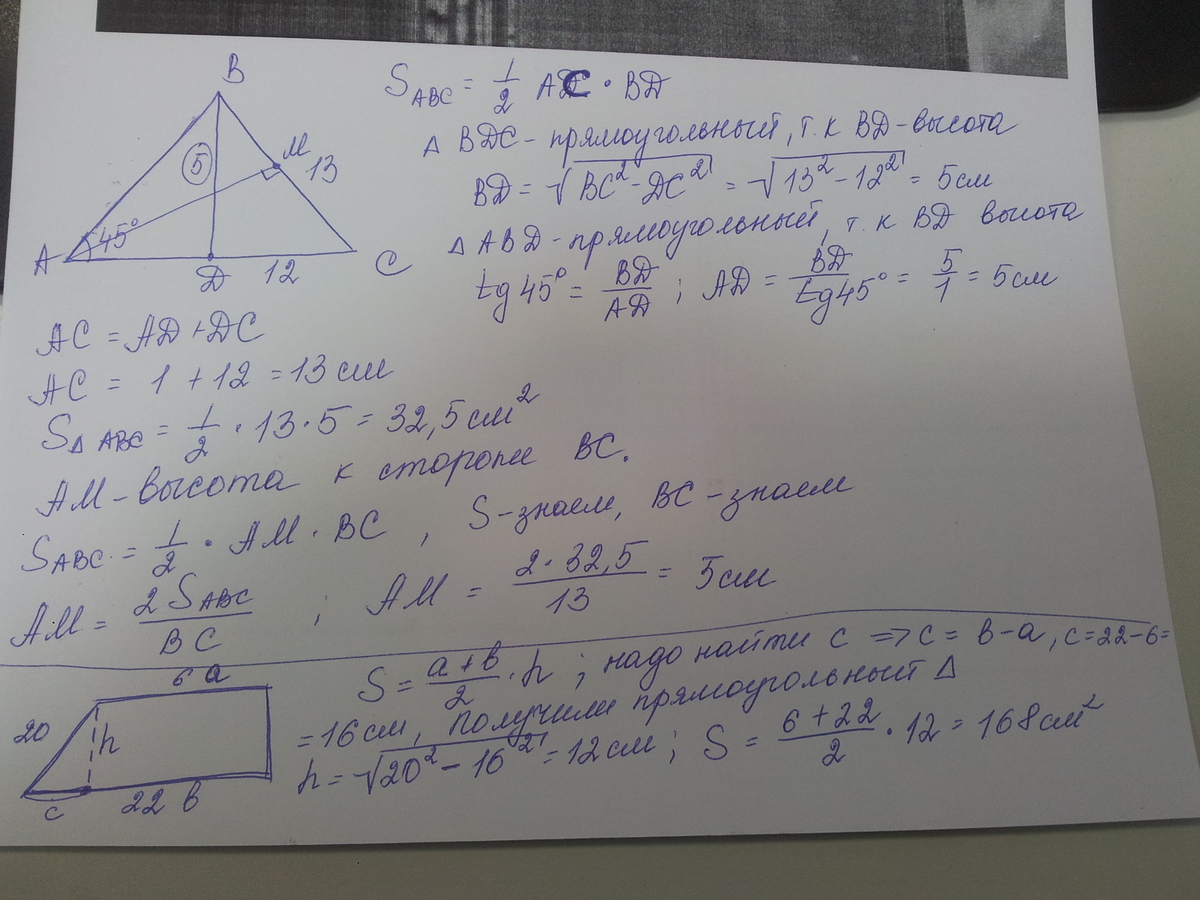 B
M
5
13
A
45°
D
12
C
S ABC = 1/2 AC · BD
Δ BDC - прямоугольный, т.к BD - высота
BD = √BC² - DC² = √13² - 12² = 5 см
Δ ABD - прямоугольный, т.к BD высота
tg 45° = BD/AD ; AD = BD/tg 45° = 5/1 = 5 см
AC = AD + DC
AC = 1 + 12 = 13 см
S Δ ABC = 1/2 · 13 · 5 = 32,5 см²
AM - высота к стороне BC.
S ABC = 1/2 · AM · BC , S - знаем, BC - знаем
AM = 2 S ABC/BC ; AM = 2 · 32,5/13 = 5 см
6 a
20
h
c
22 в
S = a + в/2 · h ; надо найти c => c = в - a, c = 22 - 6 =
= 16 см, получили прямоугольный Δ
h = √20² - 16² = 12 см ; S = 6 + 22/2 · 12 = 168 см²